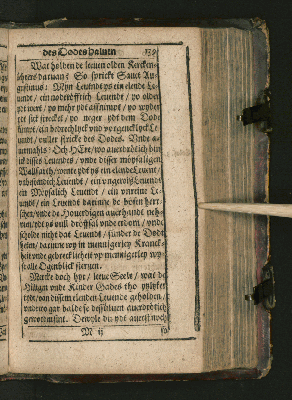 des Dodes haluen 139
Wat holden de leeuen olden Kercken-
lehrers daruan? So spricke Sanct Au-
gustinus: Myn Leuendt ys ein elende Le-
uendt / ein nodtröfftich Leuendt / yo older
ydt wert / yo mehr ydt affnimpt / yo wyder
ydt sick strecket / yo neger ydt dem Dode
kumpt / ein bedrechlyck vnd vorgencklyck Le-
uendt / vuller stricke des Dodes. Vnde
Och HEre / wo auerdrötich bin
ick disses Leuendes / vnde disser möysaligen
Walfarth / wente ydt ys ein elende Leuent /
Leuendt / ein vngewiß Leuendt
ein Möysalich Leuendt / ein vnreine Le-
uendt / ein Leuendt darinne de bösen herr-
schen / vnde de Houerdigen auerhandt neh-
men / ydt ys vull dröffsal vnde errdom / vnde
scholde nicht dat Leuendt / sünder de Dodt
heten / darinne wy in mennigerley Kranck-
heit vnde gebrecklicheit vp mennigerley wyse
alle Ogenblick steruen.
Mercke doch hyr / leeue Seele / wat de
Hilligen vnde Kinder Gades tho yslyker
tydt / van dissem elenden Leuende geholden /
vnde wo gar balde se dessüluen auerdrötich
geworden sint. Dewyle du ydt auerst noch
M ij
so